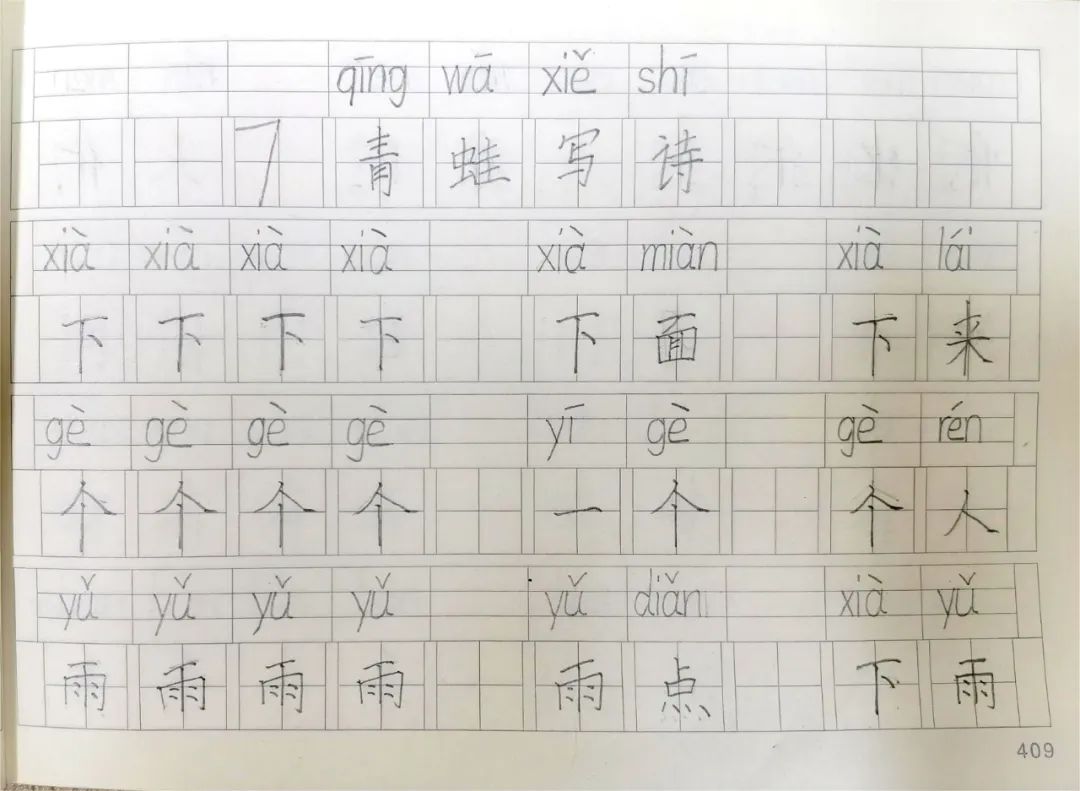 qīng wā xiě shī
7 青 蛙 写 诗
xià xià xià xià xià miàn xià lái
下 下 下 下 下 面 下 来
gè gè gè gè yī gè gè rén
个 个 个 个 一 个 个 人
yǔ yǔ yǔ yǔ yǔ diǎn xià yǔ
雨 雨 雨 雨 雨 点 下 雨
409